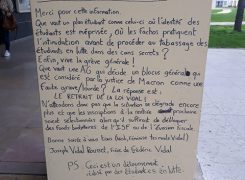 Merci pour cette information.
Que vaut un plan étudiant comme celui-ci où l'identité des
étudiants est méprisée, où les fachos pratiquent
l'intimidation avant de procéder au tabassage des
étudiants en lutte dans des cars secrets ?
Enfin, vive la grève générale !
Que vaut une AG qui décide un blocus général qui
est considéré par la justice de Macron comme une
faute grave/lourde ? La réponse est :
LE RETRAIT DE LA LOI VIDAL !
N'attendons donc pas que la situation se dégrade encore
plus et que les inscriptions à la rentrée prochaine
soient sélectionnées alors qu'il suffirait de débloquer
des fonds budgétaires de l'ISF ou de l'Évasion fiscale.
Bonne santé à vous tous
Joseph Vidal Rousset, frère de Frédéric Vidal
PS Ceci est un détournement
rédigé par des étudiants en lutte